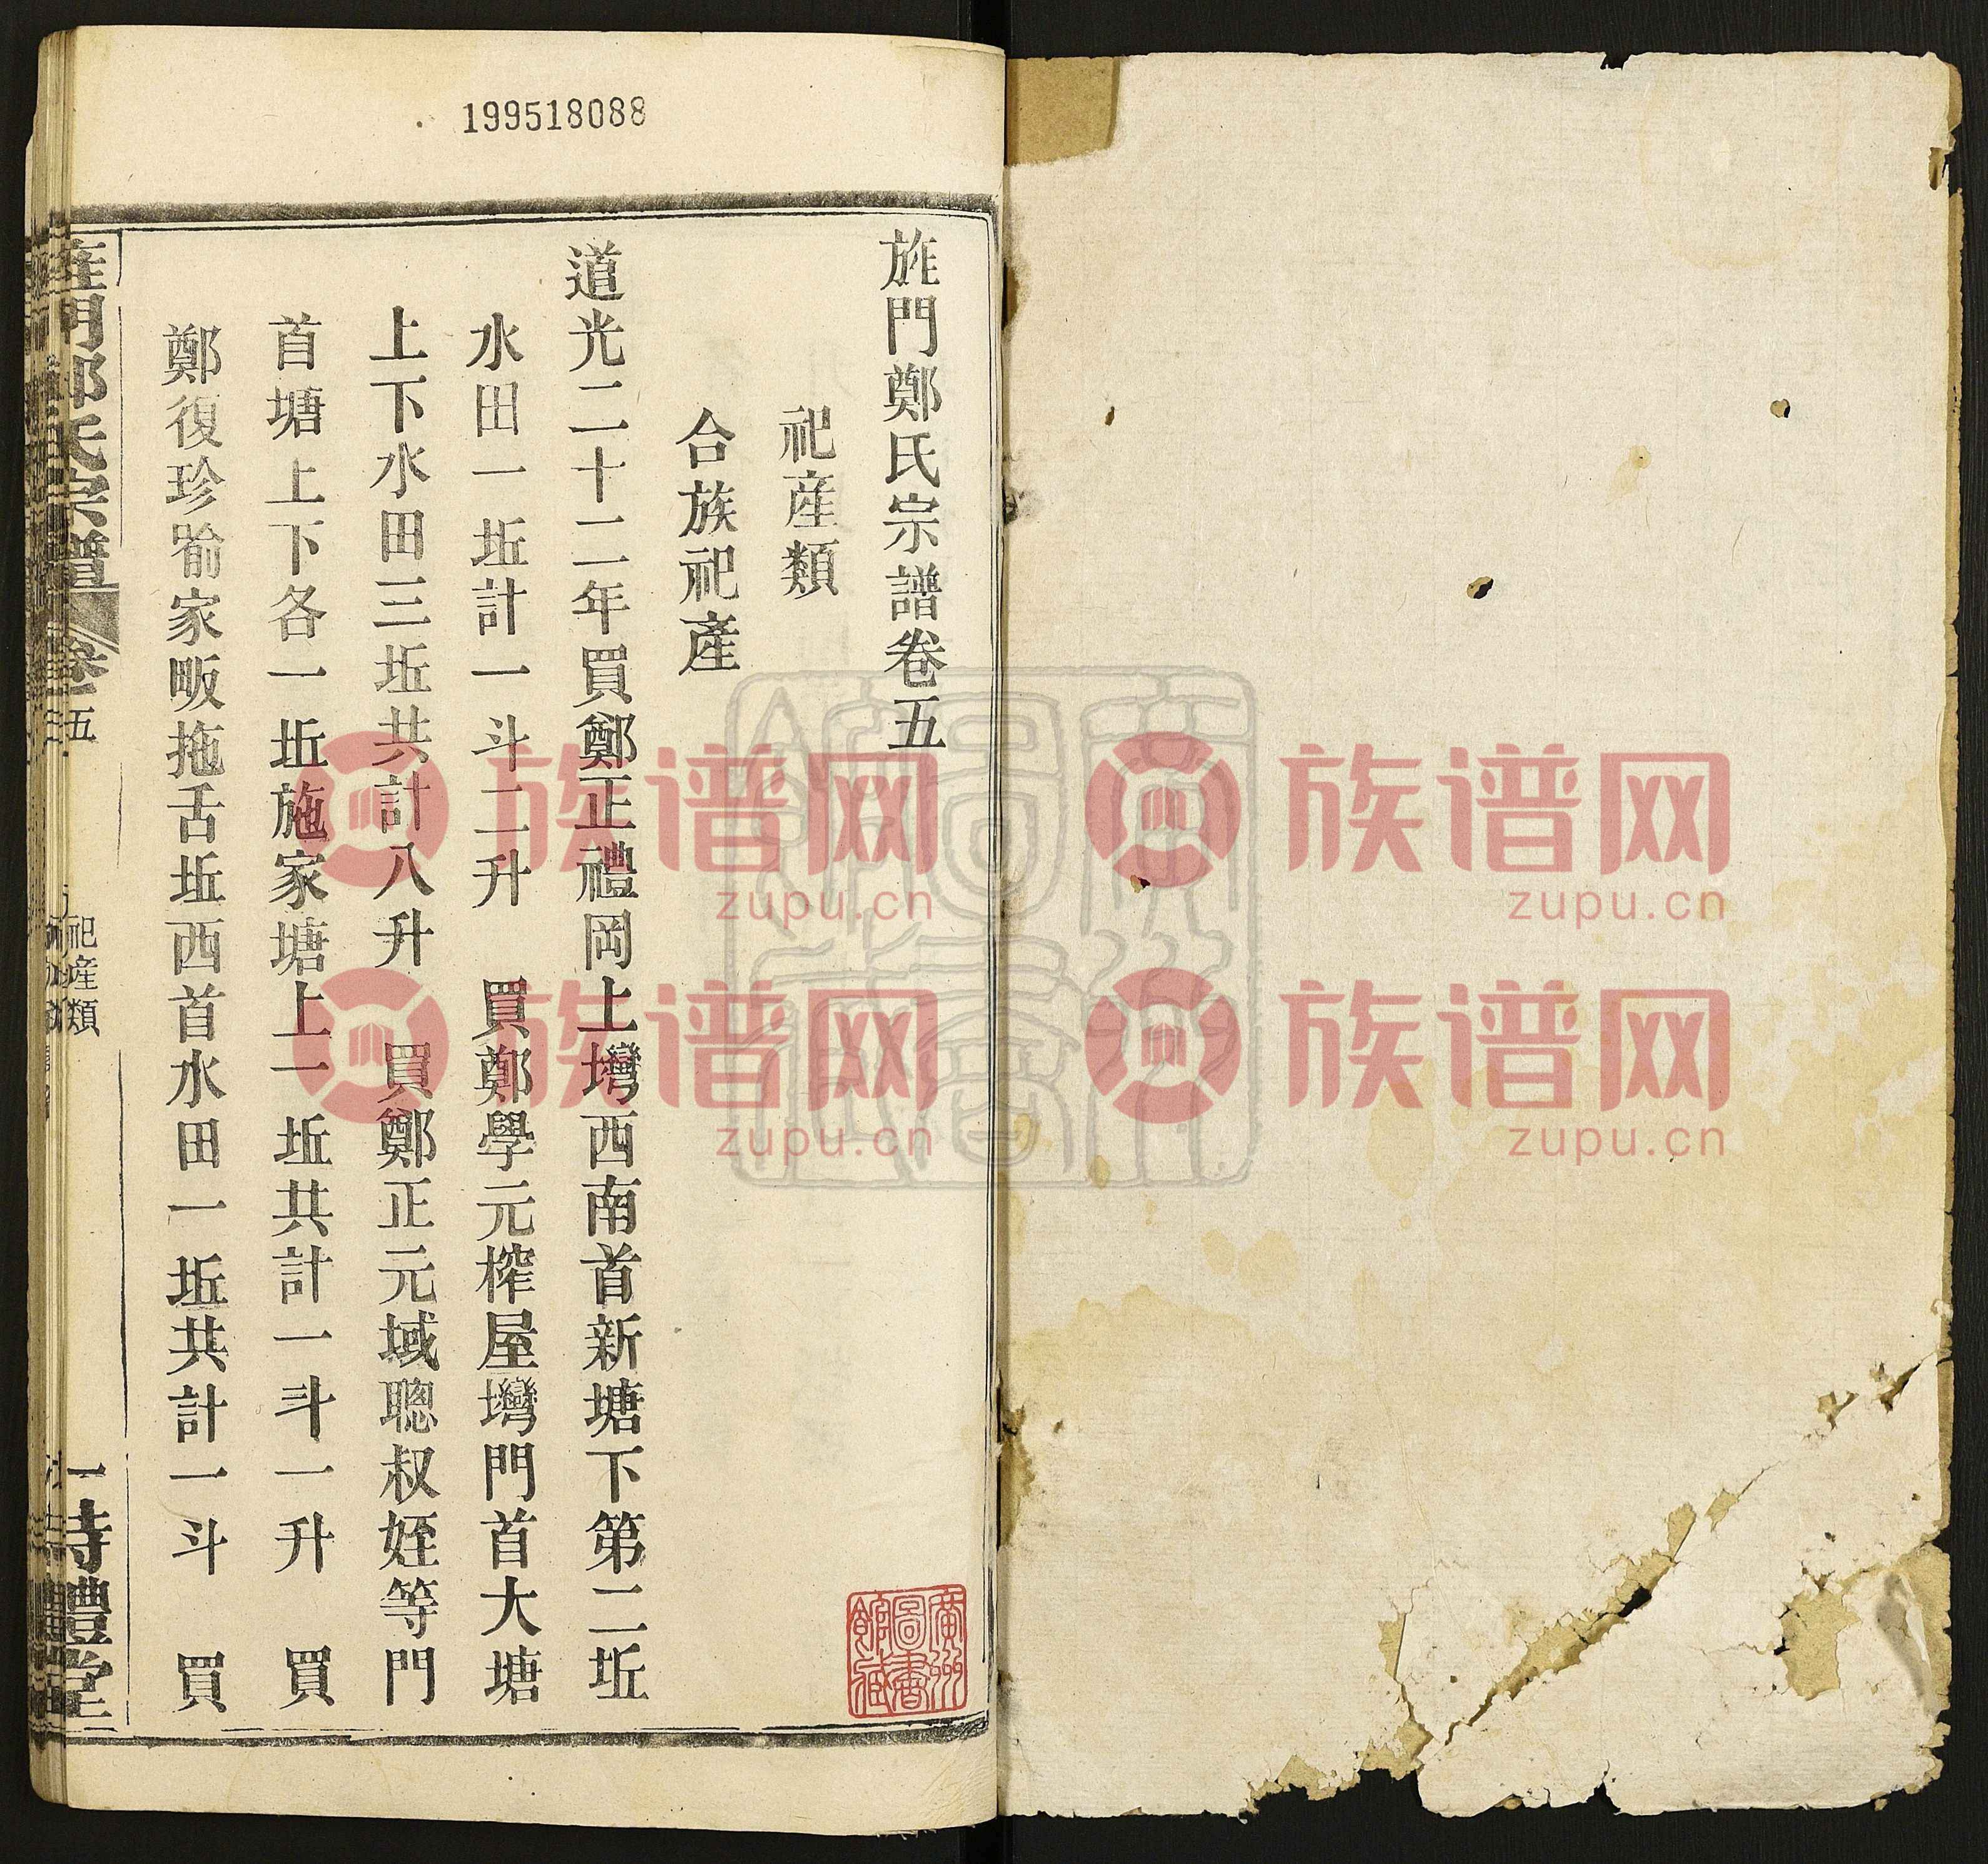 199518088
旌門鄭氏宗譜卷五
祀產類
合族祀產
道光二十二年買鄭正禮岡上塆西南首新塘下第二坵
水田一坵計一斗二升　買鄭學元榨屋塆門首大塘
上下水田三坵共計八升　買鄭正元域聰叔姪等門
首塘上下各一坵施家塘上一坵共計一斗一升　買
鄭復珍喻家畈拖舌坵西首水田一坵共計一斗　買
旌門鄭氏宗譜
卷五
祀產類
一
詩禮堂
廣州圖書館藏
族谱网
zupu.cn
族谱网
zupu.cn
族谱网
zupu.cn
族谱网
zupu.cn